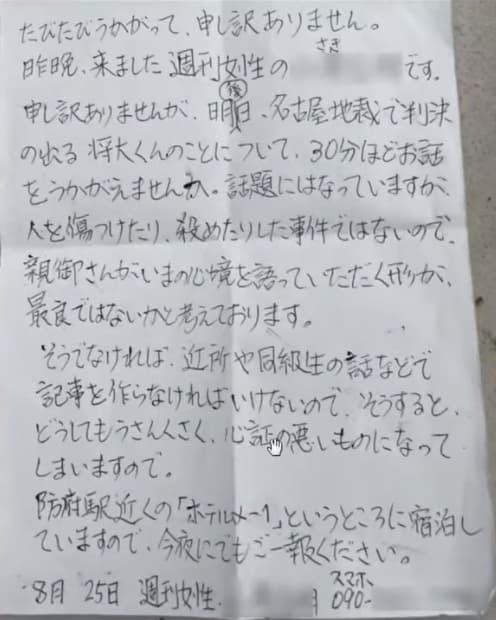 たびたびうかがって、申し訳ありません。
昨晩、来ました 週刊女性の
さき
です。
後
申し訳ありませんが、明日、名古屋地裁で判決
の出る 将大くんのことについて、30分ほどお話
をうかがえませんか。話題にはなっていますが、
人を傷つけたり、殺めたりした事件ではないので、
親御さんがいまの心境を語っていただく形が、
最良ではないかと考えております。
そうでなければ、近所や同級生の話などで
記事を作らなければいけないので、そうすると、
どうしてもうさんくさく、心証の悪いものになって
しまいますので。
防府駅近くの「ホテルメー1」というところに宿泊し
ていますので、今夜にでもご一報ください。
8月 25日 週刊女性
スマホ
090-